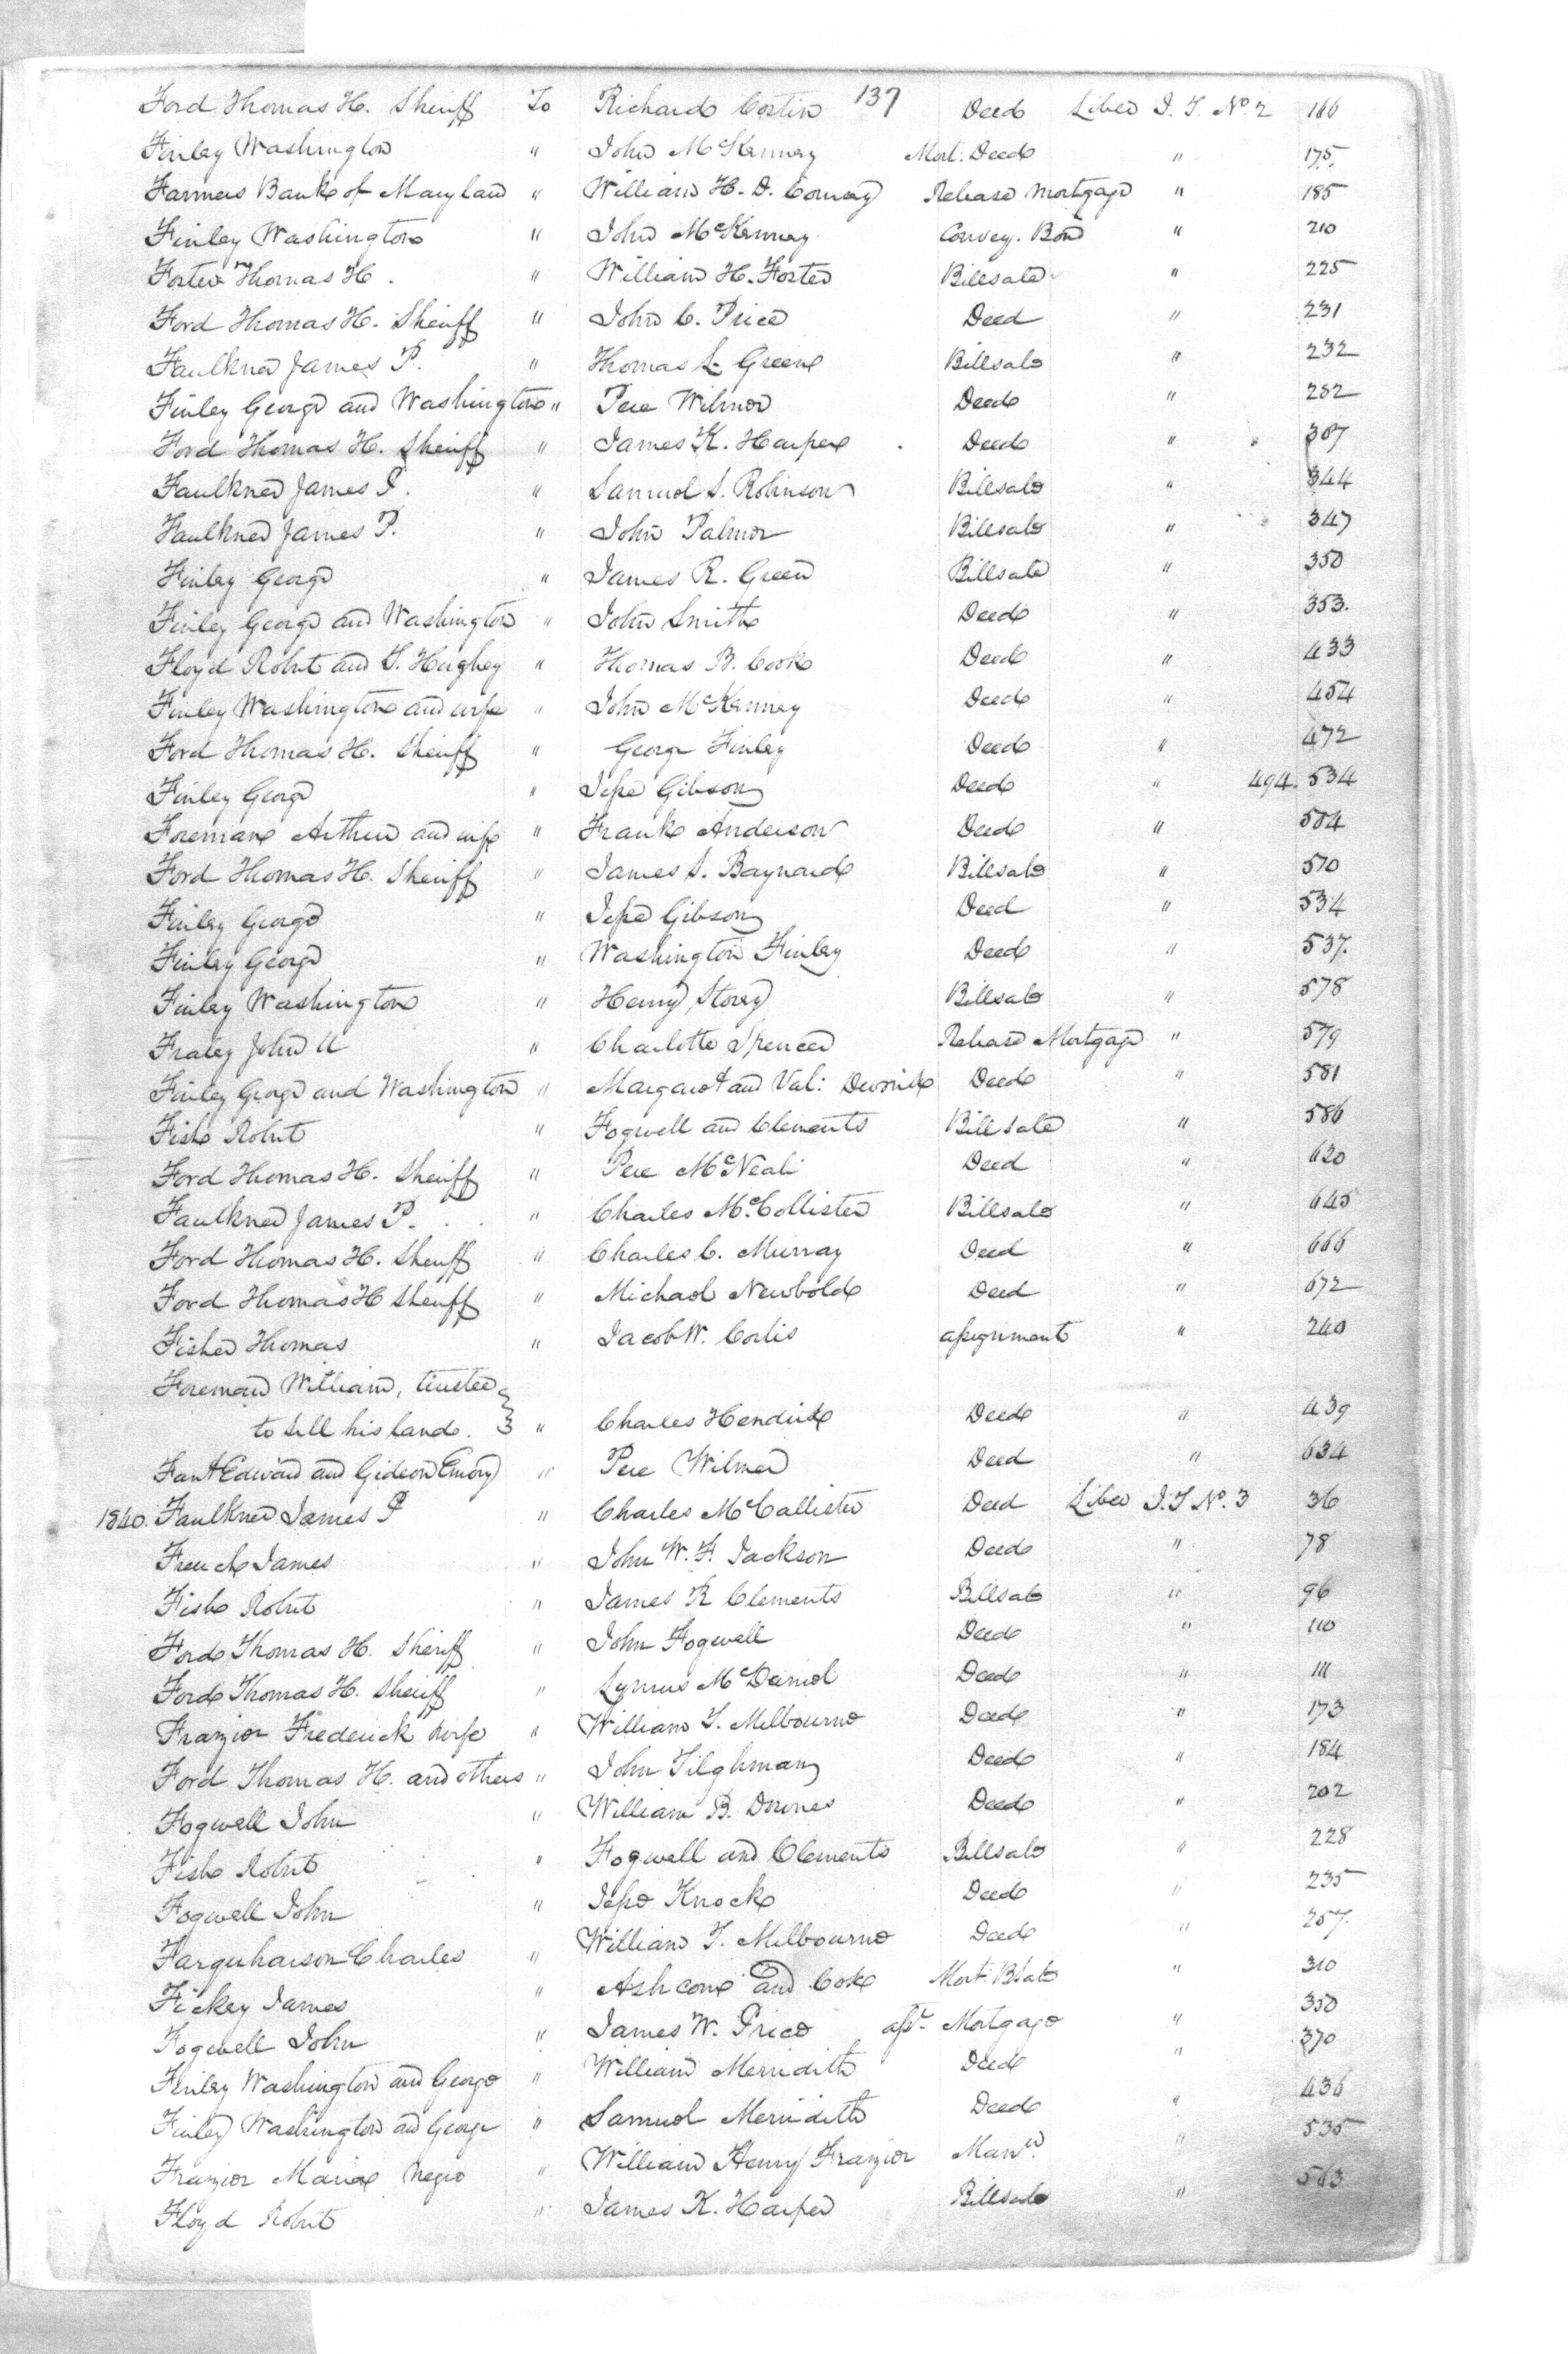 137
Ford Thomas H. Sheriff To Richard Costin Deed Liber I. T. No. 2 166
Finley Washington " John McKenney Mort: Deed " 175
Farmers Bank of Maryland " William H. D. Conway Release Mortgage " 185
Finley Washington " John McKenney Convey. Bond " 210
Foster Thomas H. " William H. Foster Billsale " 225
Ford Thomas H. Sheriff " John C. Price Deed " 231
Faulkner James P. " Thomas L. Green Billsale " 232
Finley George and Washington " Pere Wilmer Deed " 252
Ford Thomas H. Sheriff " James K. Harper Deed " 307
Faulkner James P. " Samuel S. Robinson Billsale " 344
Faulkner James P. " John Palmer Billsale " 347
Finley George " James R. Green Billsale " 350
Finley George and Washington " John Smith Deed " 353.
Floyd Robert and T. Hughey " Thomas B. Cook Deed " 433
Finley Washington and wife " John McKenney Deed " 454
Ford Thomas H. Sheriff " George Finley Deed " 472
Finley George " Jesse Gibson Deed " 494. 534
Foreman Arthur and wife " Frank Anderson Deed " 504
Ford Thomas H. Sheriff " James S. Baynard Billsale " 510
Finley George " Jesse Gibson Deed " 534
Finley George " Washington Finley Deed " 537.
Finley Washington " Henry Storey Billsale " 578
Fraley John U " Charlotte Spencer Release Mortgage " 579
Finley George and Washington " Margaret and Val: Deed " 581
Fish Robert " Fogwell and Clements Bill sale " 586
Ford Thomas H. Sheriff " Pere McNeal Deed " 620
Faulkner James P. " Charles McCollister Billsale " 645
Ford Thomas H. Sheriff " Charles C. Murray Deed " 666
Ford Thomas H Sheriff " Michael Newbold Deed " 672
Fisher Thomas " Jacob W. Corlis assignment " 240
Foreman William, trustee
to sell his land. } " Charles Hendrix Deed " 439
Fant Edward and Gideon Emory " Pere Wilmer Deed " 634
1840. Faulkner James P " Charles McCallister Deed Liber I. T No. 3 36
French James " John W. F. Jackson Deed " 78
Fish Robert " James R Clements Billsale " 96
Ford Thomas H. Sheriff " John Fogwell Deed " 110
Ford Thomas H. Sheriff " Lynus McDaniel Deed " 111
Frazier Frederick &wife " William T. Melbourne Deed " 173
Ford Thomas H. and others " John Tilghman Deed " 184
Fogwell John " William B. Downes Deed " 202
Fish Robert " Fogwell and Clements Billsale " 228
Fogwell John " Jesse Knock Deed " 235
Farquharson Charles " William T. Melbourne Deed " 257.
Fickey James " Ashcom and Cook Mort. Bsale " 310
Fogwell John " James W. Price asst. Mortgage " 350
Finley Washington and George " William Merridith Deed " 370
Finley Washington and George " Samuel Merridith Deed " 436
Frazier Maria Negro " William Henry Frazier Manu. " 535
Floyd Robert " James K. Harper Billsale " 563